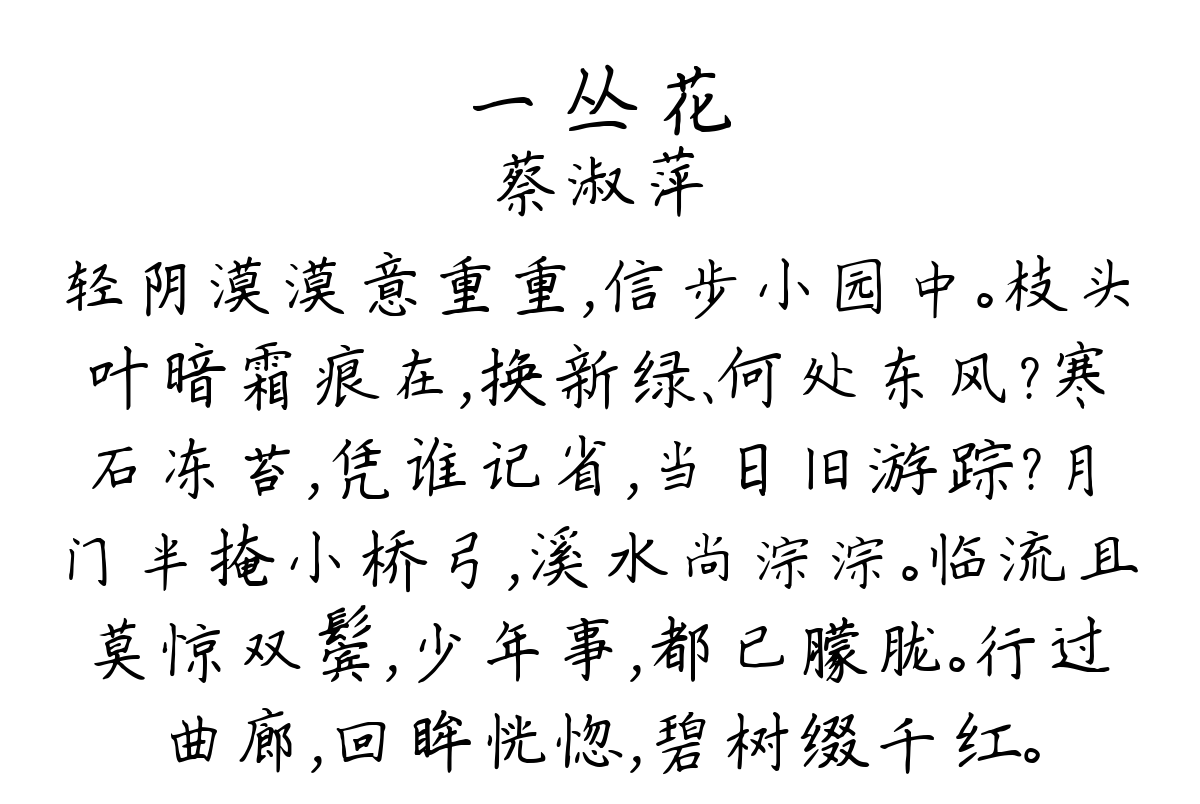 一丛花
蔡淑萍
轻阴漠漠意重重,信步小园中。枝头
叶暗霜痕在,换新绿、何处东风?寒
石冻苔,凭谁记省,当日旧游踪?月
门半掩小桥弓,溪水尚淙淙。临流且
莫惊双鬓,少年事,都已朦胧。行过
曲廊,回眸恍惚,碧树缀千红。